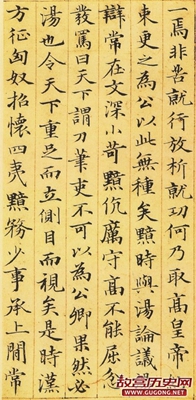 一焉非苦就行放析就功何乃取高皇帝
束更之為公以此無種矣黯時與湯論議
辯常在文深小苛黯伉厲守高不能屈忿
發罵曰天下謂刀筆吏不可以為公卿果然必
湯也令天下重足而立側目而視矣是時漢
方征匈奴招懷四夷黯務少事承上間常
故宫历史网